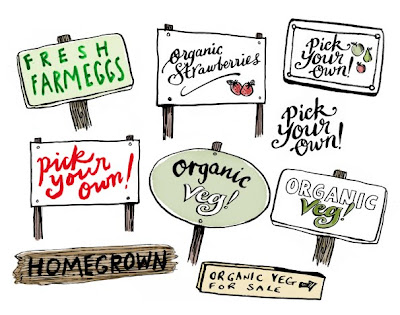 FRESH
FARM EGGS
Organic
Strawberries
Pick
Your
Own!
Pick
Your
Own!
Pick
your
own!
Organic
Veg!
ORGANIC
Veg!
HOMEGROWN
ORGANIC VEG
FOR SALE